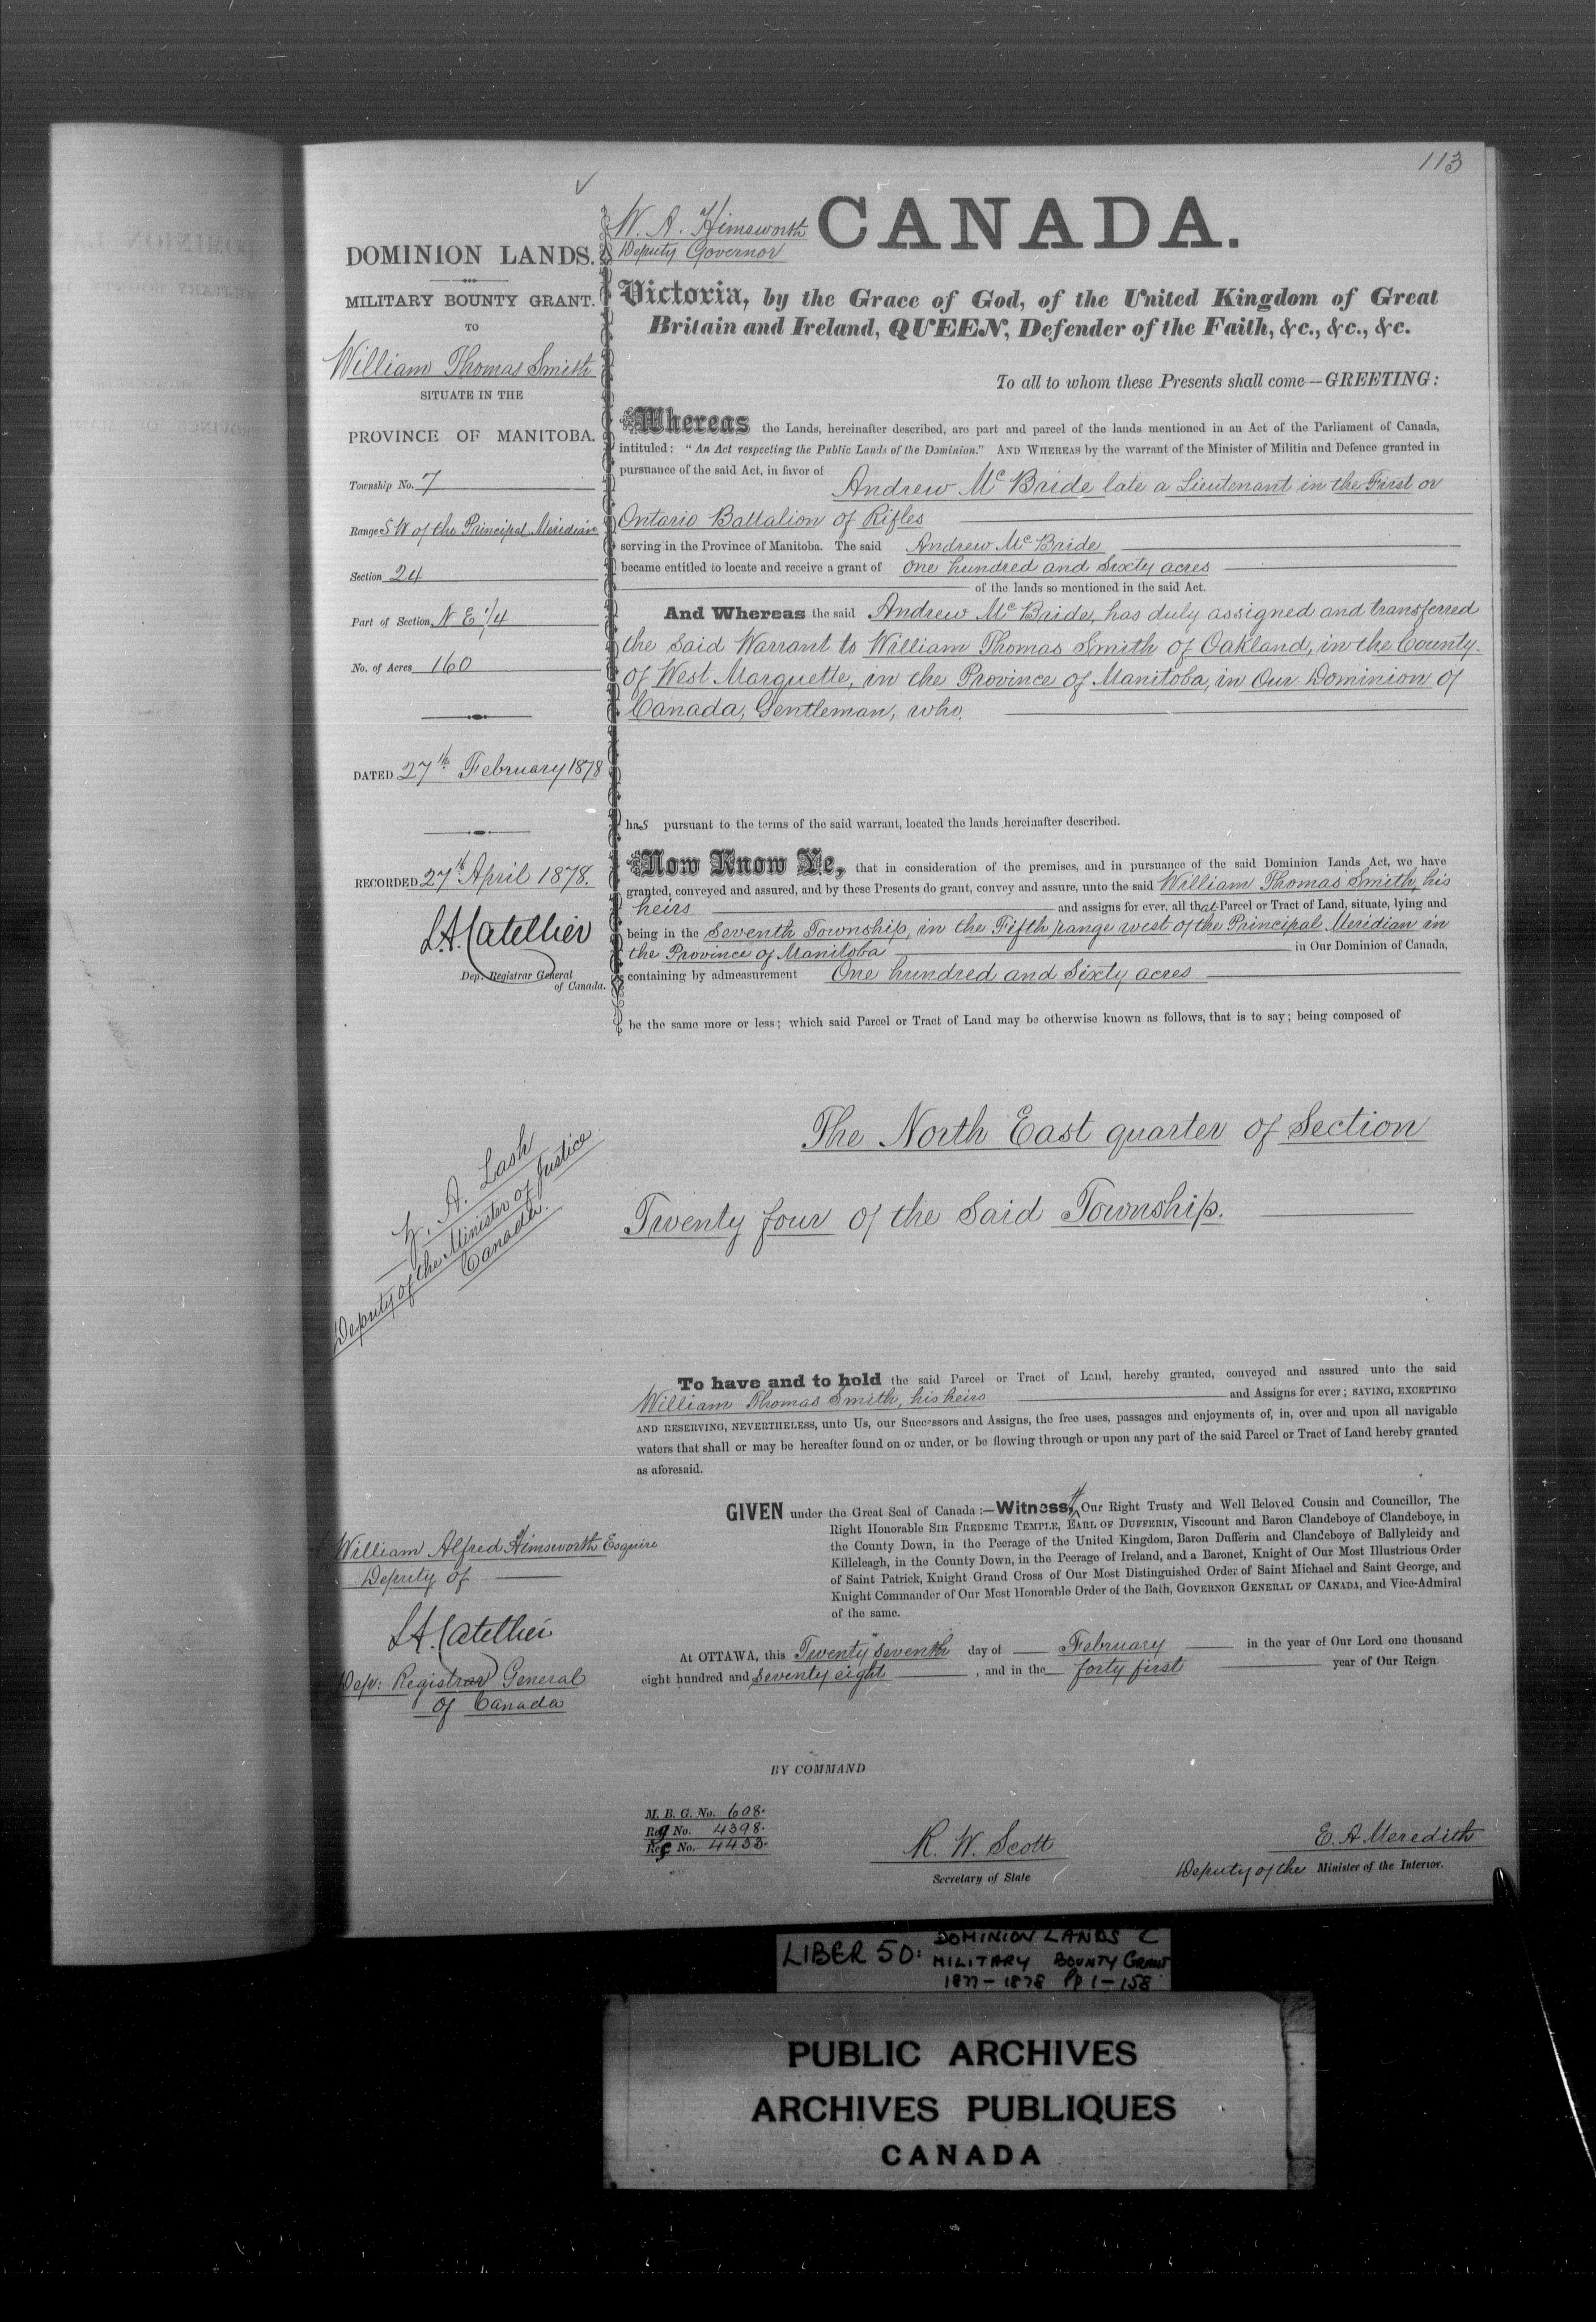 113
W. A. Himsworth
Deputy Governor
CANADA.
DOMINION LANDS.
MILITARY BOUNTY GRANT.
TO
William Thomas Smith
SITUATE IN THE
PROVINCE OF MANITOBA.
Township No. 7
Range 5 W of the Principal Meridian
Section 24
Part of Section N E 1/4
No. of Acres 160
DATED 27th February 1878
RECORDED 27th April 1878.
L.A. Catellier
Dep. Registrar General
of Canada.
Z. A. Lash
Deputy of the Minister of Justice
Canada.
William Alfred Himsworth Esquire
Deputy of
L.A. Catellier
Dep: Registrar General
of Canada
Victoria, by the Grace of God, of the United Kingdom of Great
Britain and Ireland, QUEEN, Defender of the Faith, &c., &c., &c.
To all to whom these Presents shall come—GREETING:
Whereas the Lands, hereinafter described, are part and parcel of the lands mentioned in an Act of the Parliament of Canada,
intituled: "An Act respecting the Public Lands of the Dominion." AND WHEREAS by the warrant of the Minister of Militia and Defence granted in
pursuance of the said Act, in favor of
Andrew Mc Bride late a Lieutenant in the First or
Ontario Battalion of Rifles
serving in the Province of Manitoba. The said Andrew Mc Bride
became entitled to locate and receive a grant of one hundred and Sixty acres
of the lands so mentioned in the said Act.
And Whereas the said Andrew Mc Bride, has duly assigned and transferred
the said Warrant to William Thomas Smith of Oakland, in the County
of West Marquette, in the Province of Manitoba, in Our Dominion of
Canada, Gentleman, who,
has pursuant to the terms of the said warrant, located the lands hereinafter described.
Now Know Ye, that in consideration of the premises, and in pursuance of the said Dominion Lands Act, we have
granted, conveyed and assured, and by these Presents do grant, convey and assure, unto the said William Thomas Smith, his
heirs and assigns for ever, all that Parcel or Tract of Land, situate, lying and
being in the Seventh Township, in the Fifth range west of the Principal Meridian in
the Province of Manitoba in Our Dominion of Canada,
containing by admeasurement One hundred and Sixty acres
be the same more or less; which said Parcel or Tract of Land may be otherwise known as follows, that is to say; being composed of
The North East quarter of Section
Twenty four of the Said Township.
To have and to hold the said Parcel or Tract of Land, hereby granted, conveyed and assured unto the said
William Thomas Smith, his heirs and Assigns for ever; SAVING, EXCEPTING
AND RESERVING, NEVERTHELESS, unto Us, our Successors and Assigns, the free uses, passages and enjoyments of, in, over and upon all navigable
waters that shall or may be hereafter found on or under, or be flowing through or upon any part of the said Parcel or Tract of Land hereby granted
as aforesaid.
GIVEN under the Great Seal of Canada:—Witness, Our Right Trusty and Well Beloved Cousin and Councillor, The
Right Honorable SIR FREDERIC TEMPLE, EARL OF DUFFERIN, Viscount and Baron Clandeboye of Clandeboye, in
the County Down, in the Peerage of the United Kingdom, Baron Dufferin and Clandeboye of Ballyleidy and
Killeleagh, in the County Down, in the Peerage of Ireland, and a Baronet, Knight of Our Most Illustrious Order
of Saint Patrick, Knight Grand Cross of Our Most Distinguished Order of Saint Michael and Saint George, and
Knight Commander of Our Most Honorable Order of the Bath, GOVERNOR GENERAL OF CANADA, and Vice-Admiral
of the same.
At OTTAWA, this Twenty Seventh day of February in the year of Our Lord one thousand
eight hundred and Seventy eight, and in the forty first year of Our Reign.
BY COMMAND
M. B. G. No. 608.
Reg No. 4398.
Ref No. 4433.
R. W. Scott
Secretary of State
E. A Meredith
Deputy of the Minister of the Interior.
LIBER 50: DOMINION LANDS C
MILITARY BOUNTY GRANT
1877-1878 Pp 1-158
PUBLIC ARCHIVES
ARCHIVES PUBLIQUES
CANADA